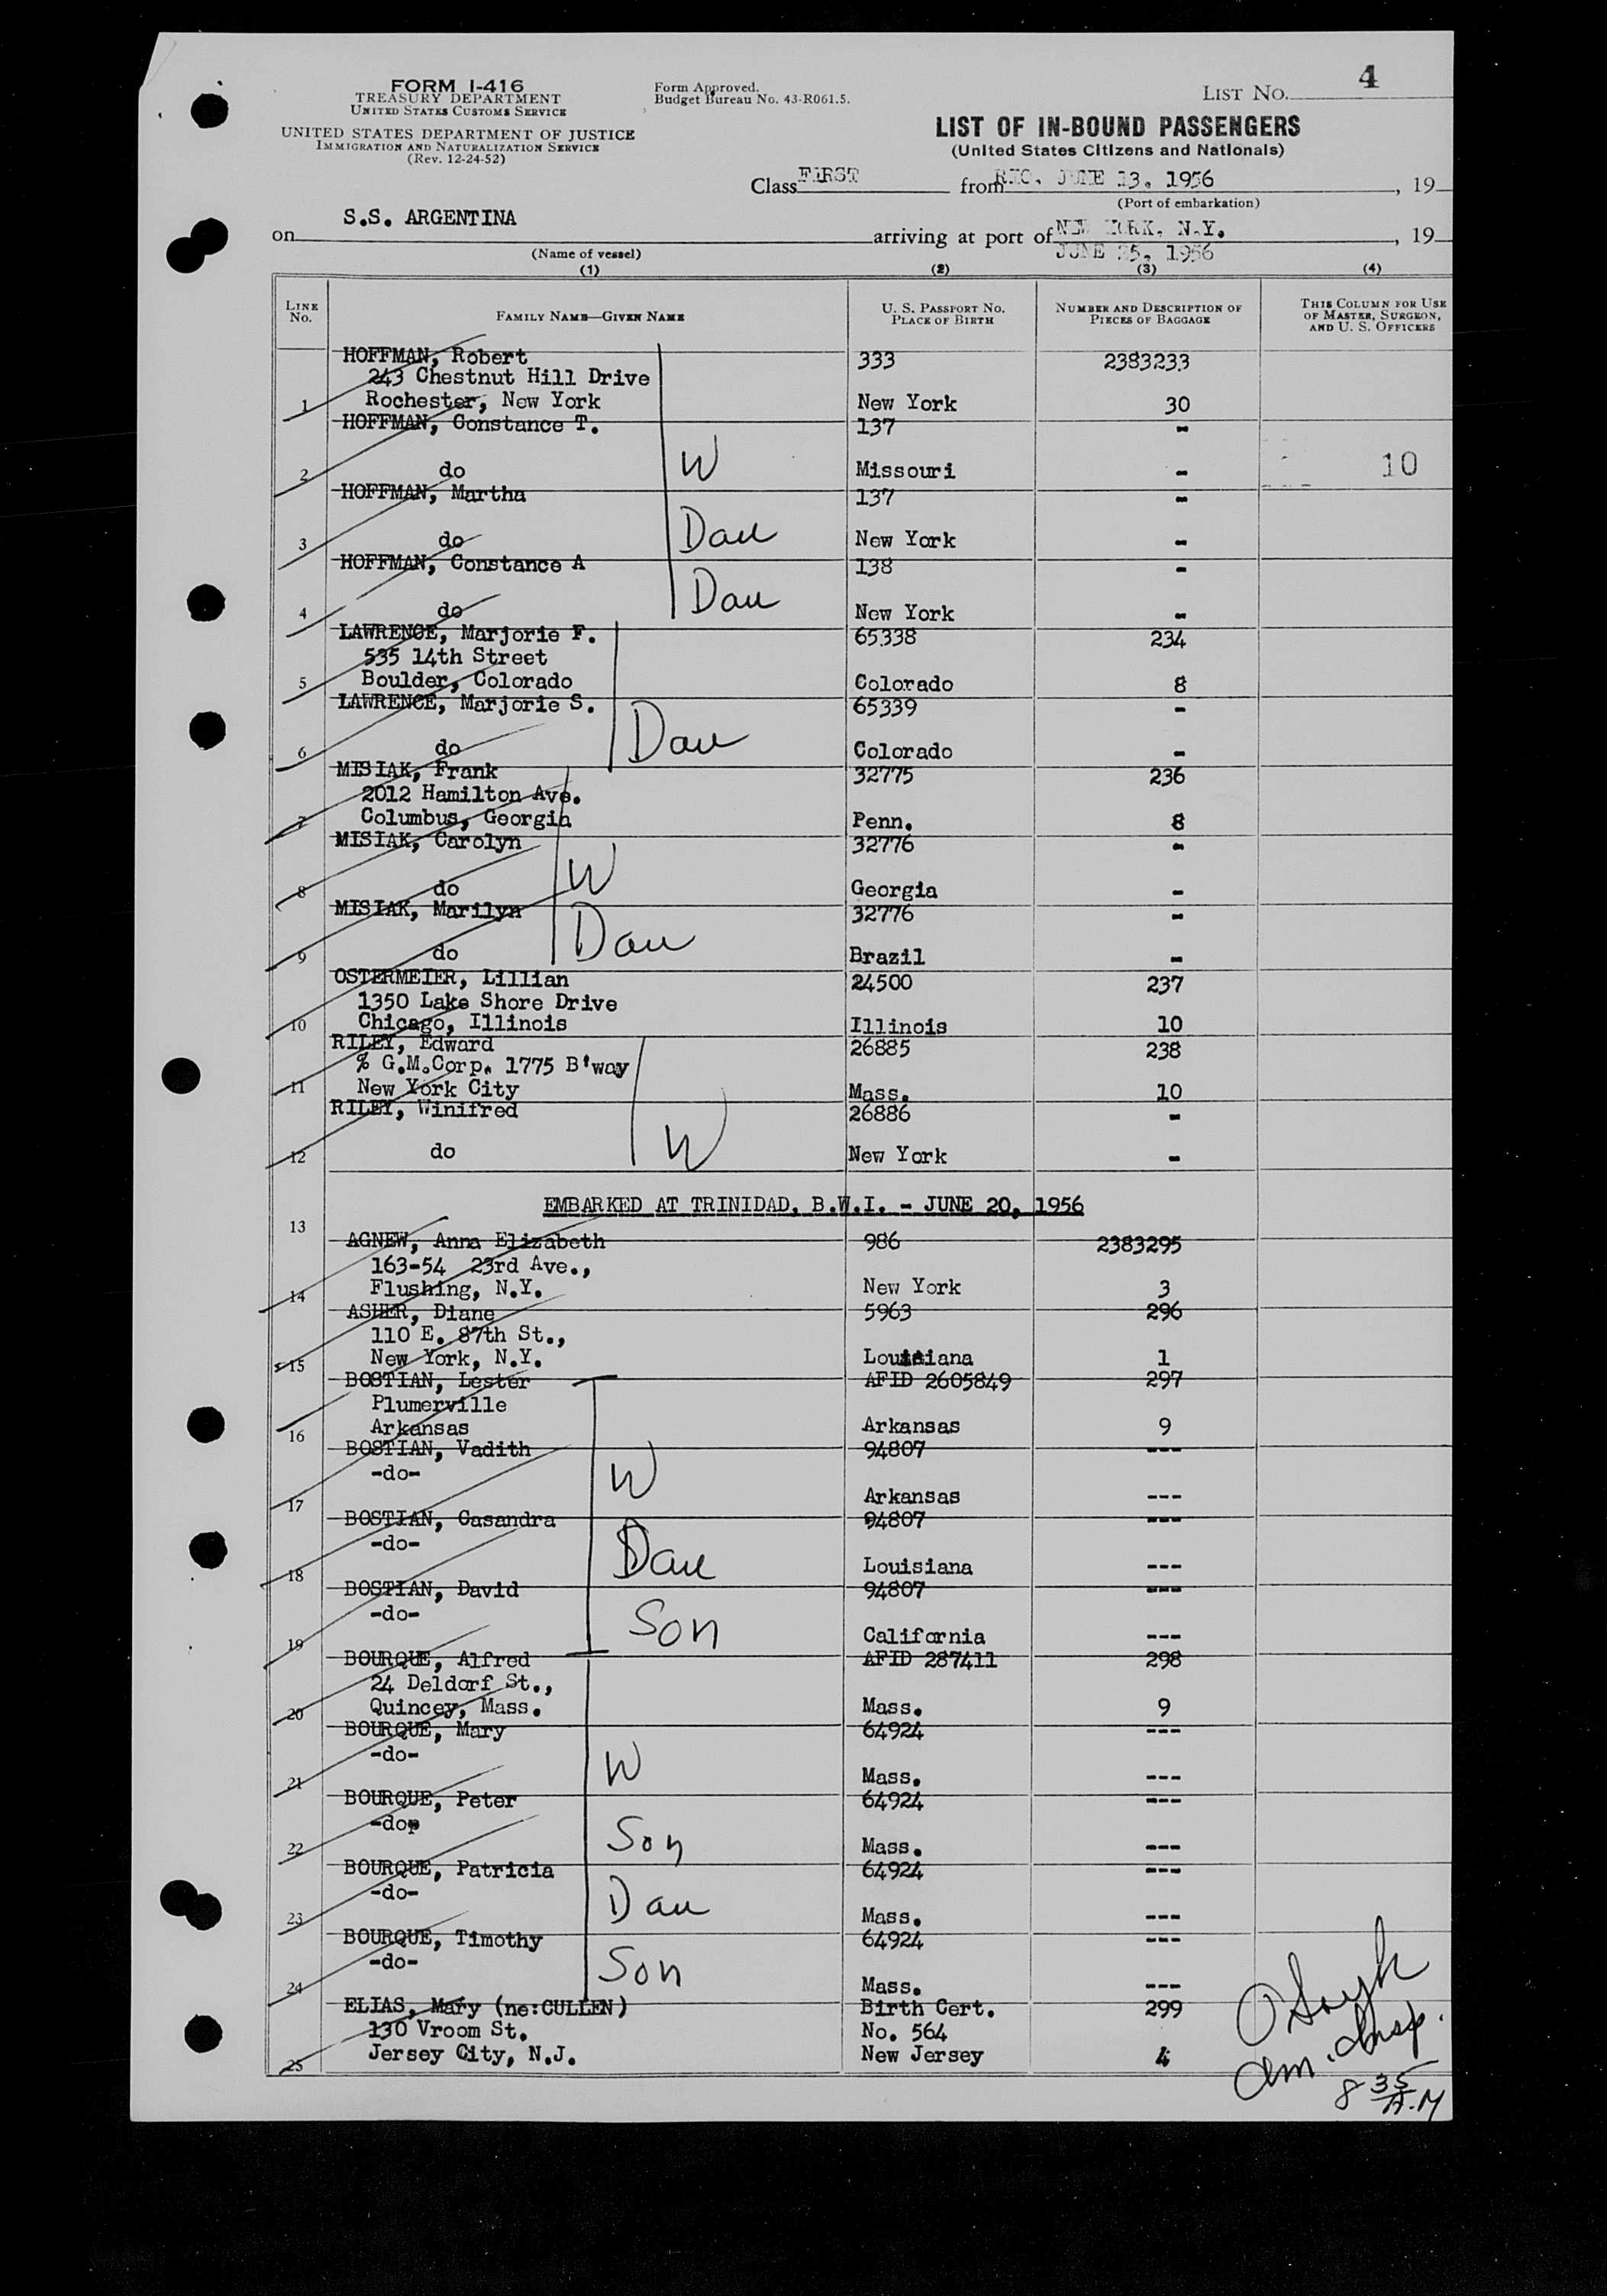 FORM I-416
TREASURY DEPARTMENT
UNITED STATES CUSTOMS SERVICE
UNITED STATES DEPARTMENT OF JUSTICE
IMMIGRATION AND NATURALIZATION SERVICE
(Rev. 12-24-52)
Form Approved.
Budget Bureau No. 43-R061.5.
LIST NO. 4
LIST OF IN-BOUND PASSENGERS
(United States Citizens and Nationals)
Class FIRST from RIO, JUNE 13, 1956, 19
(Port of embarkation)
on S.S. ARGENTINA arriving at port of NEW YORK, N.Y., 19
JUNE 25, 1956
(Name of vessel)
(1) (2) (3) (4)
LINE NO. FAMILY NAME—GIVEN NAME U. S. PASSPORT NO. PLACE OF BIRTH NUMBER AND DESCRIPTION OF PIECES OF BAGGAGE THIS COLUMN FOR USE OF MASTER, SURGEON, AND U. S. OFFICERS
HOFFMAN, Robert 333 2383233
243 Chestnut Hill Drive
1 Rochester, New York New York 30
HOFFMAN, Constance T. 137 -
2 do W Missouri - 10
HOFFMAN, Martha 137 -
3 do Dau New York -
HOFFMAN, Constance A 138 -
4 do Dau New York -
LAWRENCE, Marjorie F. 65338 234
535 14th Street
5 Boulder, Colorado Colorado 8
LAWRENCE, Marjorie S. 65339 -
6 do Dau Colorado -
MISIAK, Frank 32775 236
2012 Hamilton Ave.
7 Columbus, Georgia Penn. 8
MISIAK, Carolyn 32776 -
8 do W Georgia -
MISIAK, Marilyn 32776 -
9 do Dau Brazil -
OSTERMEIER, Lillian 24500 237
1350 Lake Shore Drive
10 Chicago, Illinois Illinois 10
RILEY, Edward 26885 238
% G.M.Corp. 1775 B'way
11 New York City Mass. 10
RILEY, Winifred 26886 -
12 do W New York -
EMBARKED AT TRINIDAD, B.W.I. - JUNE 20, 1956
13
AGNEW, Anna Elizabeth 986 2383295
163-54 23rd Ave.,
14 Flushing, N.Y. New York 3
ASHER, Diane 5963 296
110 E. 87th St.,
15 New York, N.Y. Louisiana 1
BOSTIAN, Lester AFID 2605849 297
Plumerville
16 Arkansas Arkansas 9
BOSTIAN, Vadith 94807 ---
-do- W
17 Arkansas ---
BOSTIAN, Casandra 94807 ---
-do- Dau
18 Louisiana ---
BOSTIAN, David 94807 ---
-do- Son
19 California ---
BOURQUE, Alfred AFID 287411 298
24 Deldorf St.,
20 Quincey, Mass. Mass. 9
BOURQUE, Mary 64924 ---
-do- W
21 Mass. ---
BOURQUE, Peter 64924 ---
-dop Son
22 Mass. ---
BOURQUE, Patricia 64924 ---
-do- Dau
23 Mass. ---
BOURQUE, Timothy 64924 ---
-do- Son
24 Mass. ---
ELIAS, Mary (ne:CULLEN) Birth Cert. 299
130 Vroom St. No. 564
25 Jersey City, N.J. New Jersey 4
Insp.
8 35 A.M